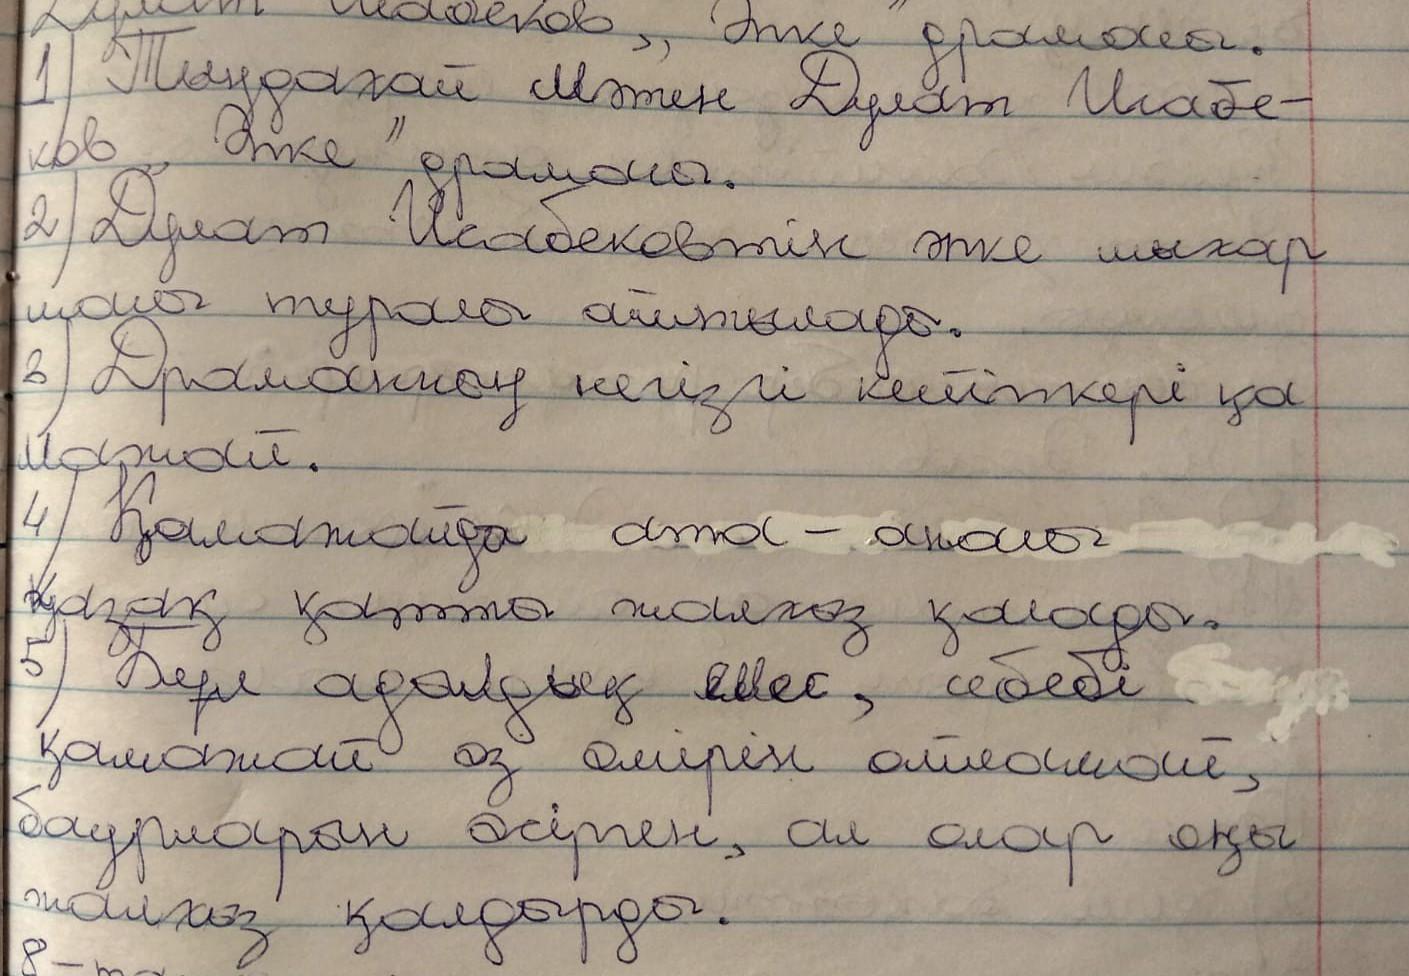 Дулат Исабеков ,, Әпке" драмасы.
1) Тыңдаған мәтін Дулат Исабе-
ков ,, Әпке" драмасы.
2) Дулат Исабековтің әпке шығар
масы туралы айтылады.
3) Драманың негізгі кейіпкері қа
мажай.
4) Қамажайда ата-анасы
қазақ қатты жалғыз қалады.
5) Бұл адалдық емес, себебі
қамажай өз өмірін ойламай,
бауырларын өсірген, ал олар оны
жалғыз қалдырды.
8-